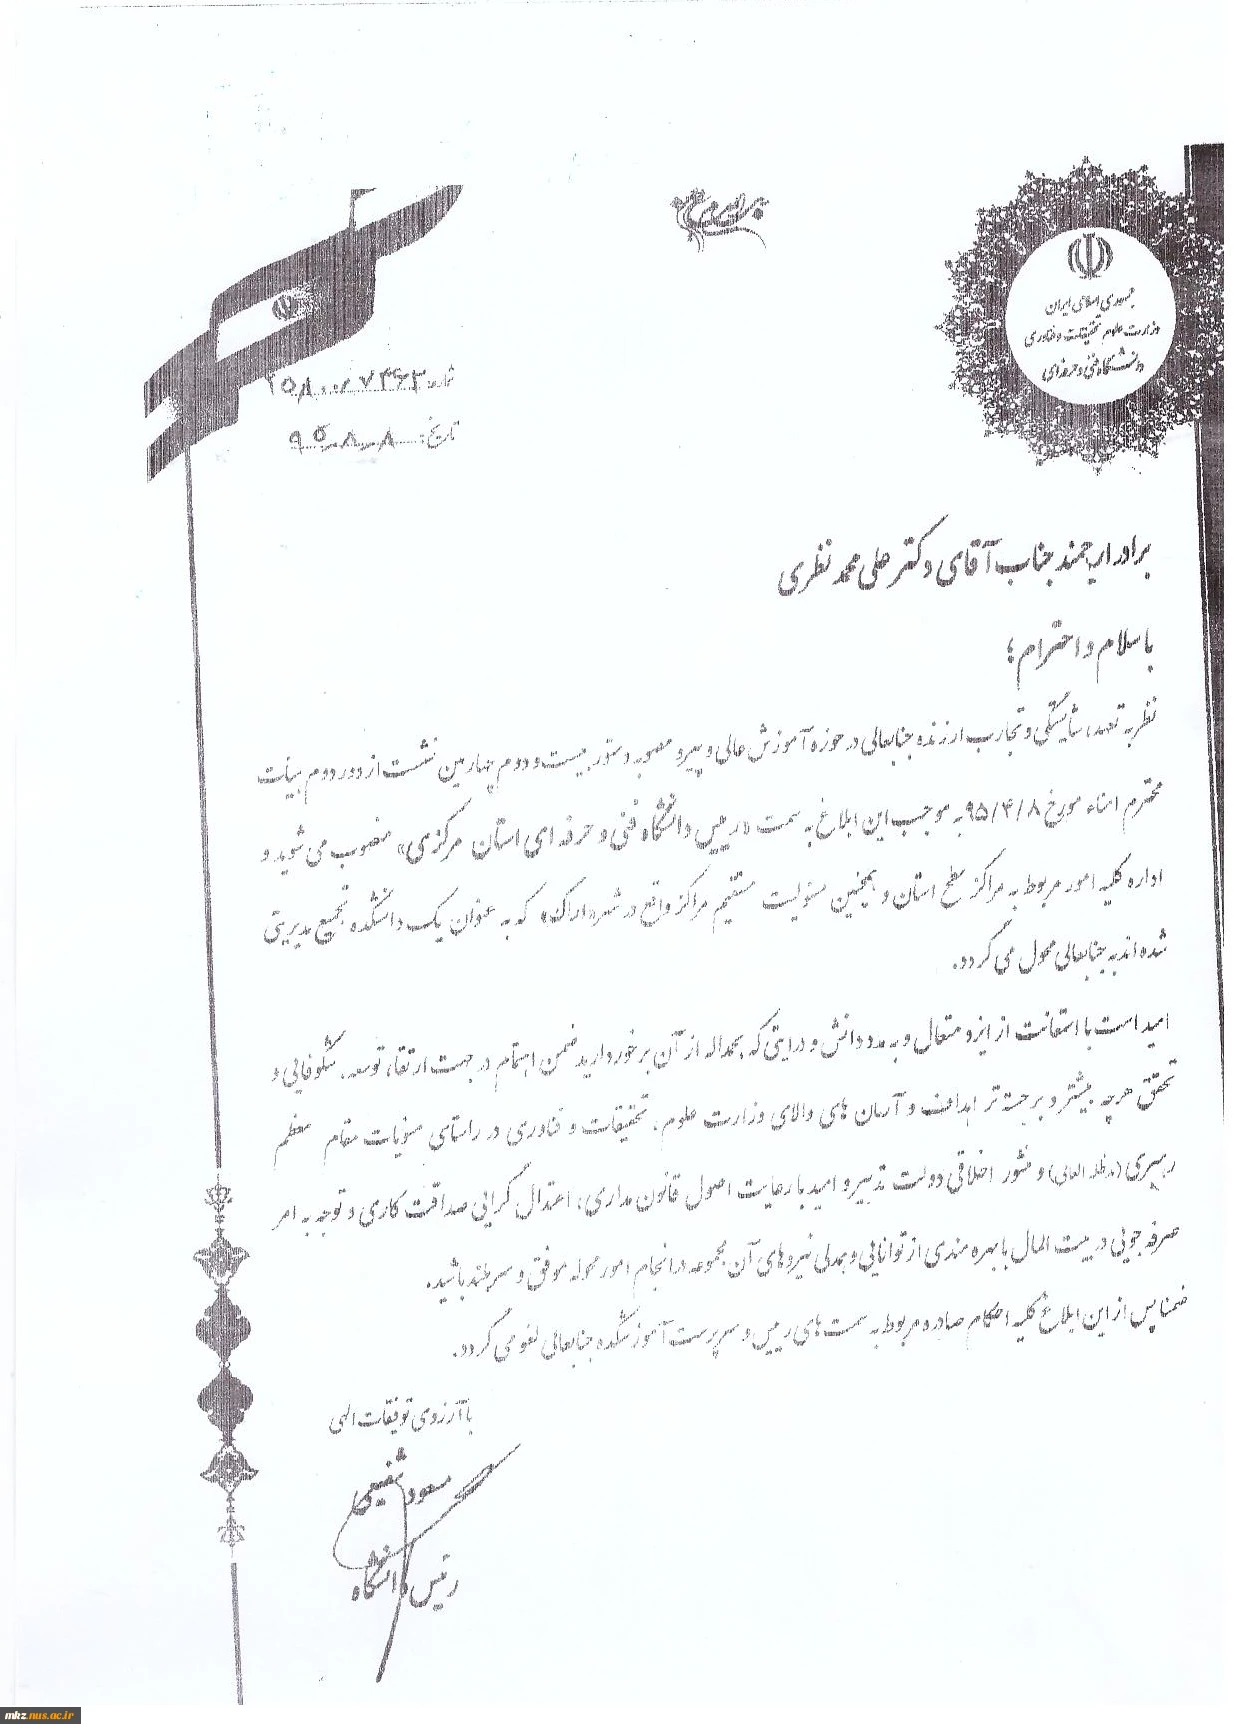 جمهوری اسلامی ایران
وزارت علوم تحقیقات و فناوری
دانشگاه فنی و حرفه ای
شماره:
تاریخ: ۹۵-۸-۸
برادر ارجمند جناب آقای دکتر علی محمد نظری
با سلام و احترام؛
نظر به تعهد، شایستگی و تجارب ارزنده جنابعالی در حوزه آموزش عالی و پیرو مصوبه دستور بیست و دوم چهارمین نشست از دور دوم هیات
محترم امناء مورخ ۹۵/۴/۸ به موجب این ابلاغ به سمت «رییس دانشگاه فنی و حرفه ای استان مرکزی» منصوب می شوید و
اداره کلیه امور مربوط به مراکز سطح استان و همچنین مسئولیت مستقیم مراکز واقع در شهر «اراک» که به عنوان یک دانشکده تجمیع مدیریتی
شده اند به جنابعالی محول می گردد.
امید است با استعانت از ایزد متعال و به مدد دانش و درایتی که بحمداله از آن برخوردارید ضمن اهتمام در جهت ارتقاء، توسعه، شکوفایی و
تحقق هرچه بیشتر و برجسته تر اهداف و آرمان های والای وزارت علوم، تحقیقات و فناوری در راستای منویات مقام معظم
رهبری (مدظله العالی) و منشور اخلاقی دولت تدبیر و امید با رعایت اصول قانون مداری، اعتدال گرایی صداقت کاری و توجه به امر
صرفه جویی در بیت المال با بهره مندی از توانایی و همدلی نیروهای آن مجموعه در انجام امور محوله موفق و سربلند باشید.
ضمنا پس از این ابلاغ کلیه احکام صادره مربوط به سمت های رییس و سرپرست آموزشکده جنابعالی لغو می گردد.
با آرزوی توفیقات الهی
مسعود شفیعی
رئیس دانشگاه
mkz.nus.ac.ir